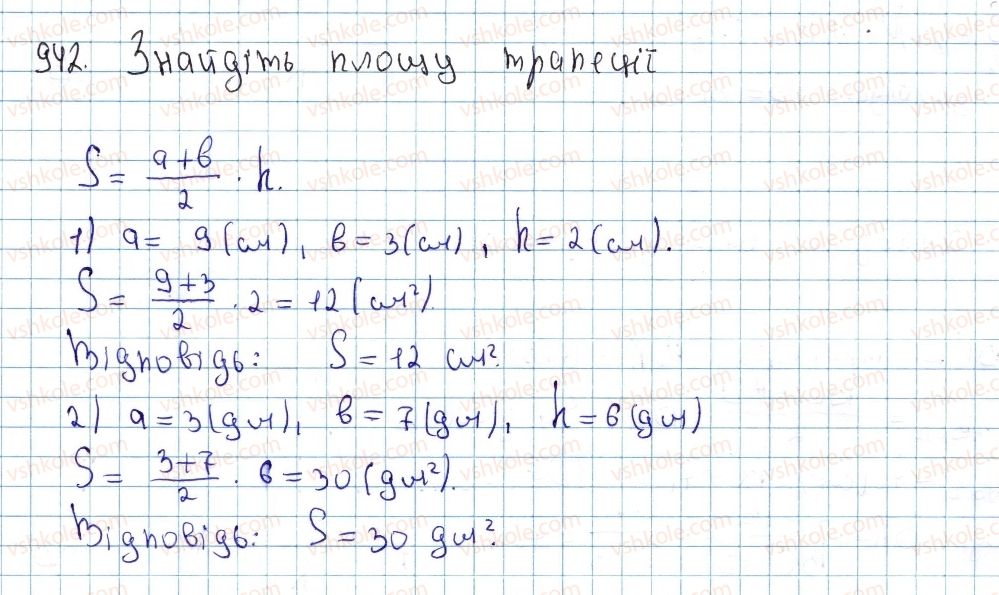 942. Знайдіть площу трапеції
S = (a+b)/2 · h.
1) a = 9 (см), b = 3 (см), h = 2 (см).
S = (9+3)/2 · 2 = 12 (см²).
Відповідь: S = 12 см².
2) a = 3 (дм), b = 7 (дм), h = 6 (дм)
S = (3+7)/2 · 6 = 30 (дм²).
Відповідь: S = 30 дм².